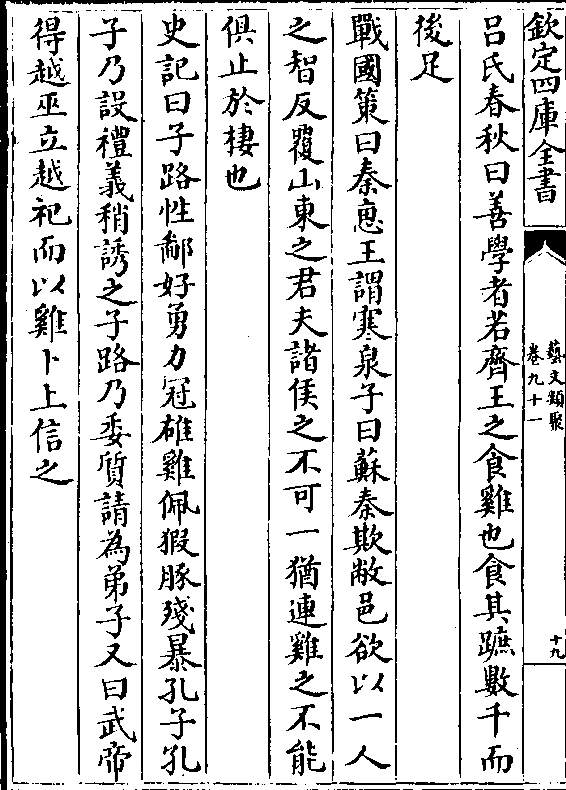 欽定四庫全書
藝文類聚
卷九十一
十九
呂氏春秋曰善學者若齊王之食雞也食其蹠數千而
後足
戰國策曰秦恵王謂寒泉子曰蘇秦欺敝邑欲以一人
之智反覆山東之君夫諸侯之不可一猶連雞之不能
俱止於棲也
史記曰子路性鄙好勇力冠雄雞佩猳豚殘暴孔子孔
子乃設禮義稍誘之子路乃委質請為弟子又曰武帝
得越巫立越祀而以雞卜上信之